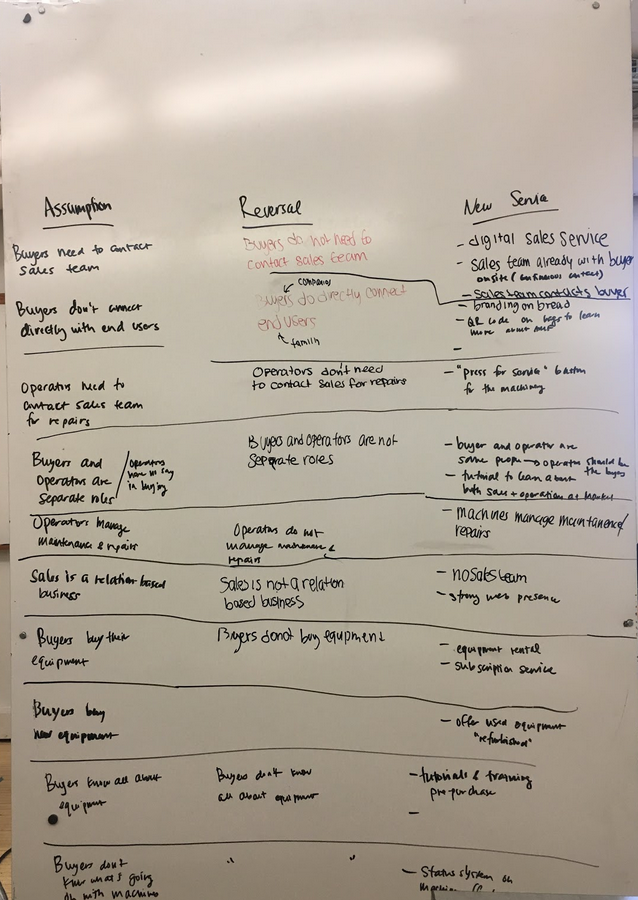 Assumption
Reversal
New Service
Buyers need to contact
sales team
Buyers do not need to
contact sales team
- digital sales service
- Sales team already with buyer
onsite (continuous contact)
- sales team contacts buyer
Buyers don't connect
directly with end users
companies
Buyers do directly connect
end users
familih
- branding on bread
- QR code on bags to learn
more about
-
Operators need to
contact sales team
for repairs
Operators don't need
to contact sales for repairs
- "press for service" button
for the machinery
Buyers and
Operators are
separate roles
operators
have no say
in buying
Buyers and operators are not
Separate roles
- buyer and operator are
same people → operator should be
the buyer
- tutorial to learn about
both sales + operations at
Operators manage
maintenance & repairs
Operators do not
manage maintenance &
repairs
- machines manage maintanence/
repairs
Sales is a relation based
business
Sales is not a relation
based business
- no sales team
- strong web presence
Buyers buy their
equipment
Buyers do not buy equipment
- equipment rental
- subscription service
Buyers buy
new equipment
- offer used equipment
"refurbished"
Buyers know all about
equipment
Buyers don't know
all about equipment
- tutorials & training
pre-purchase
-
Buyers don't
know what's going
on with machines
" "
- Status system on
machine